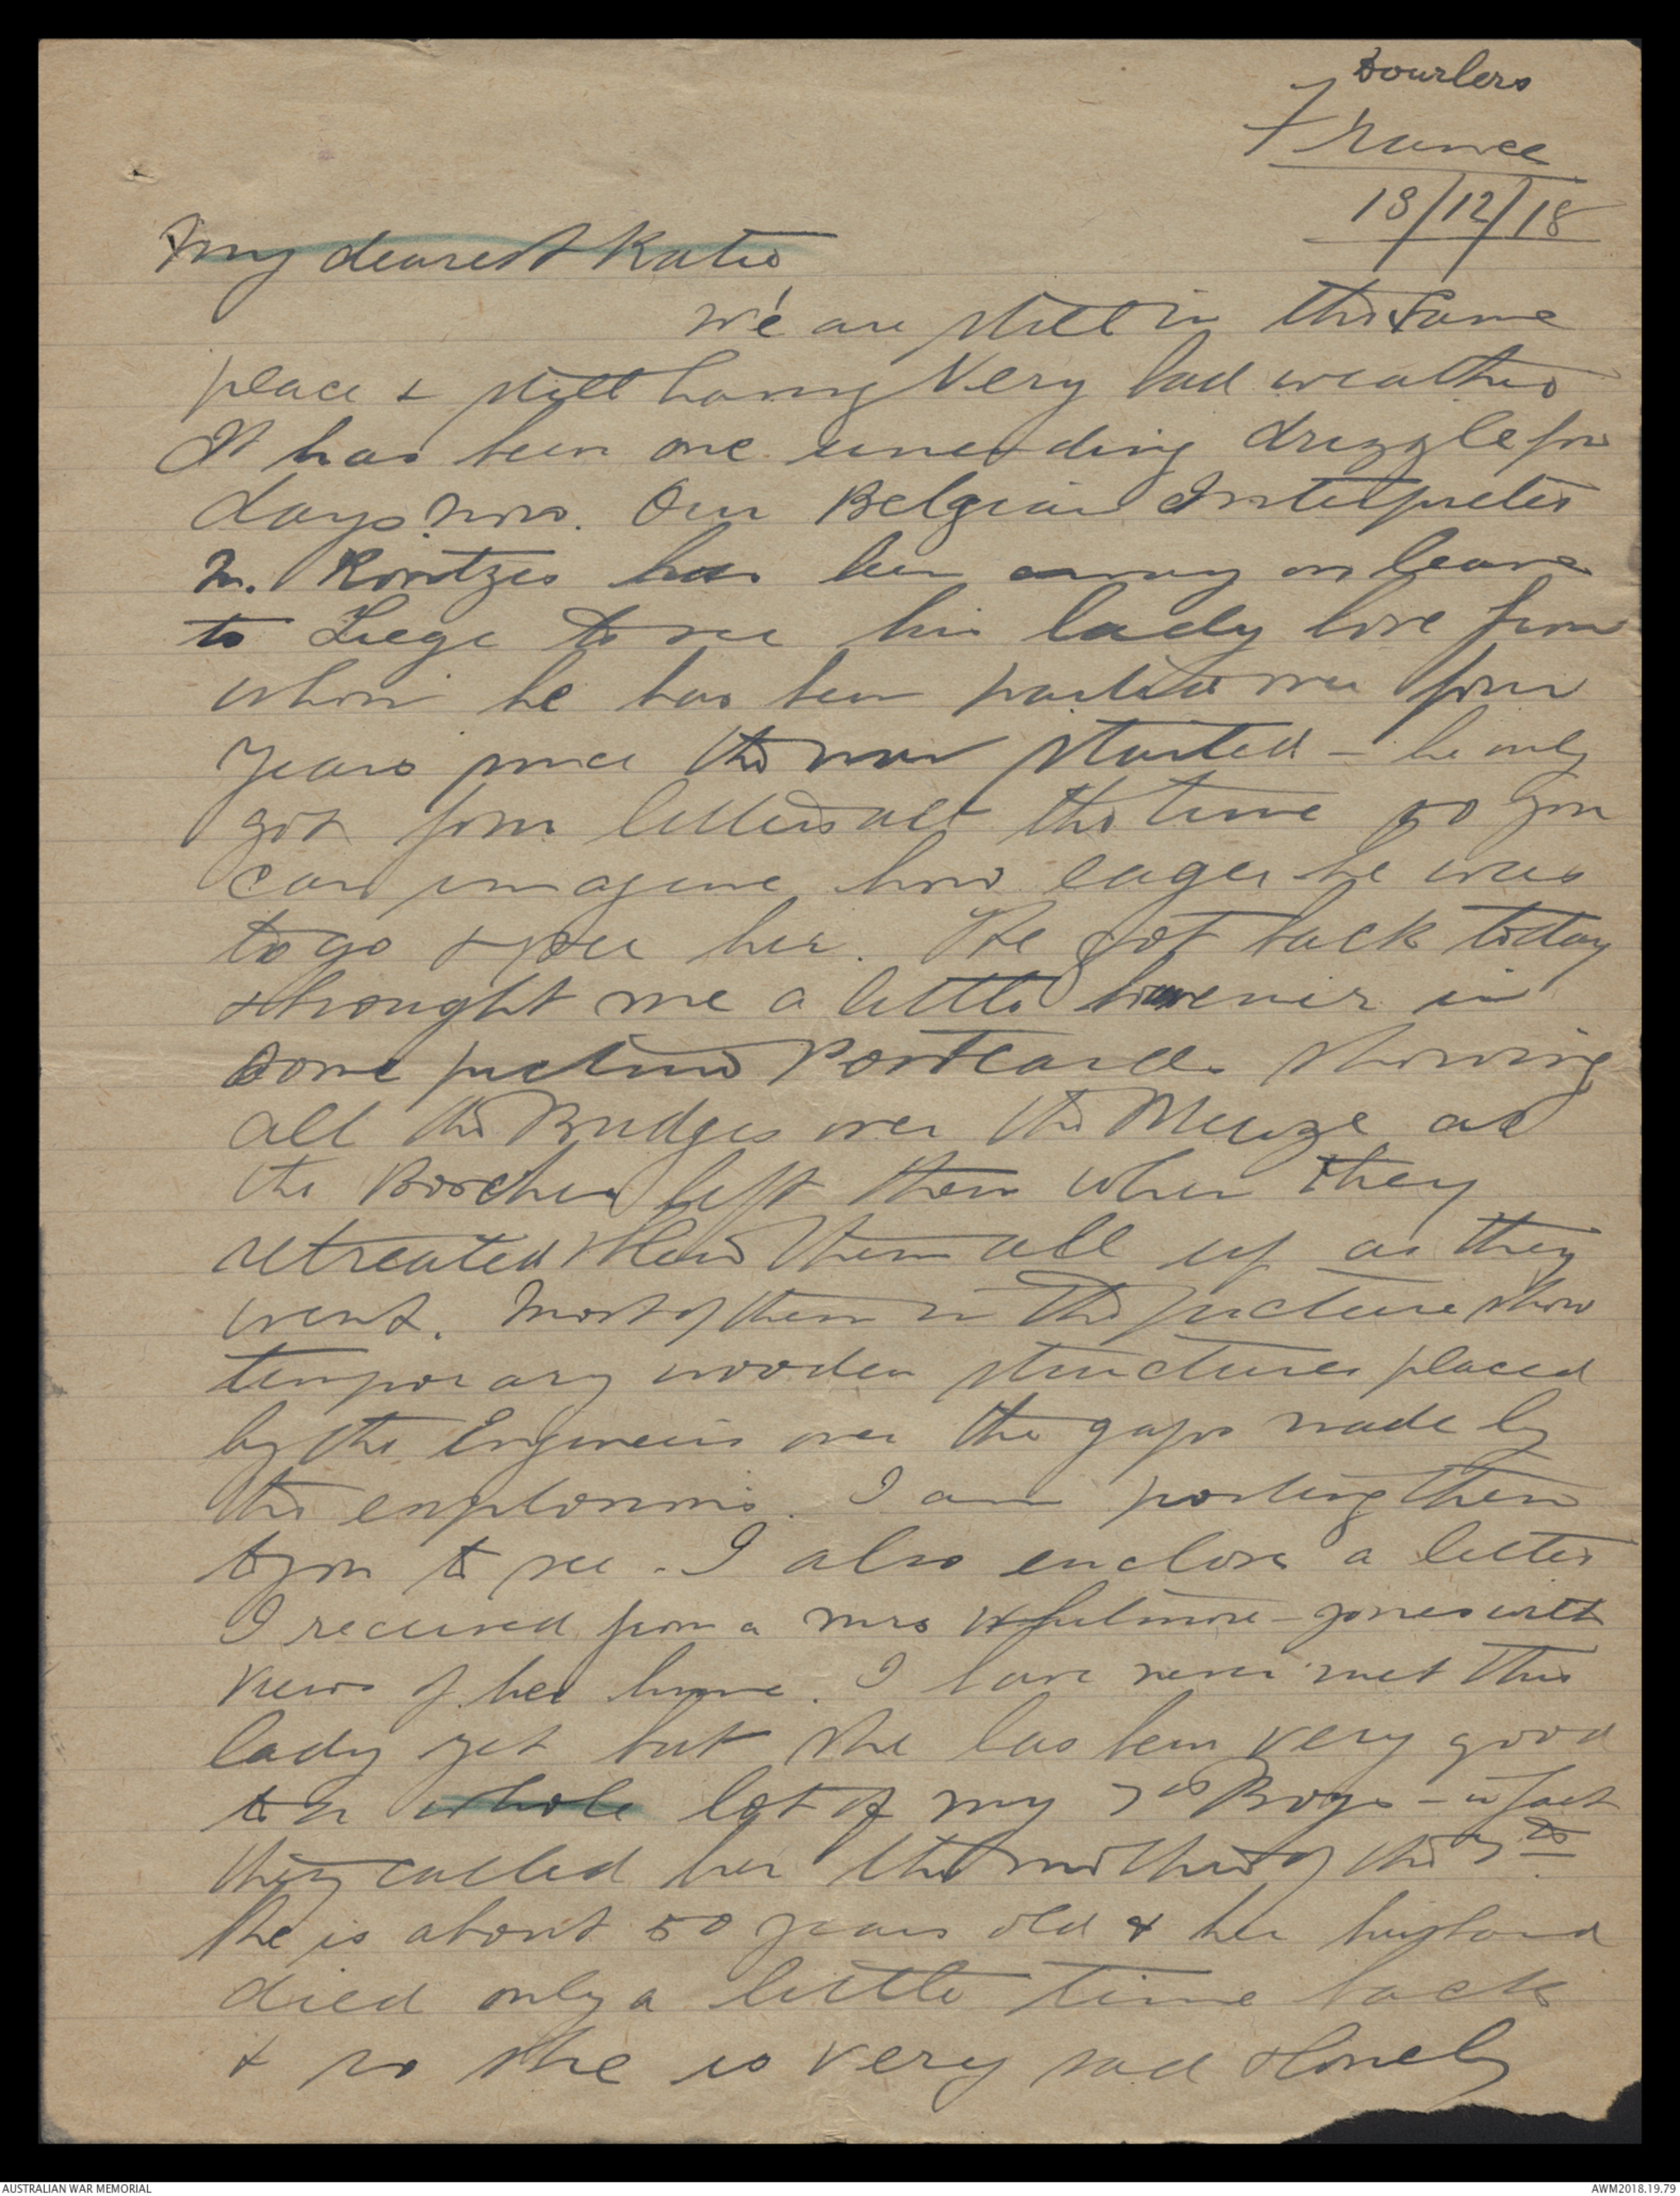 Dourlers
France
13/12/18
My dearest Katie
We are still in the same
place & still having Very bad weather
It has been one unending drizzle for
days now. Our Belgian Interpreter
M. has been away on leave
to Liege to see his lady love from
whom he has been parted over four
years since the war started - he only
got four letters all the time so you
can imagine how eager he was
to go & see her. He got back today
& brought me a little souvenir in
some picture Postcards showing
all the Bridges over the Meuze as
the Bosches left them when they
retreated & blew them all up as they
went. Most of them in the picture show
temporary wooden structures placed
by the Engineers over the gaps made by
the explosions. I am posting them
to you to see. I also enclose a letter
I received from a Mrs Whitmore-Jones with
views of her home. I have never met this
lady yet but she has been very good
to a whole lot of my 7th Boys - in fact
they called her the mother of the 7th
She is about 50 years old & her husband
died only a little time back
& so she is very sad & lonely
AUSTRALIAN WAR MEMORIAL
AWM2018.19.79